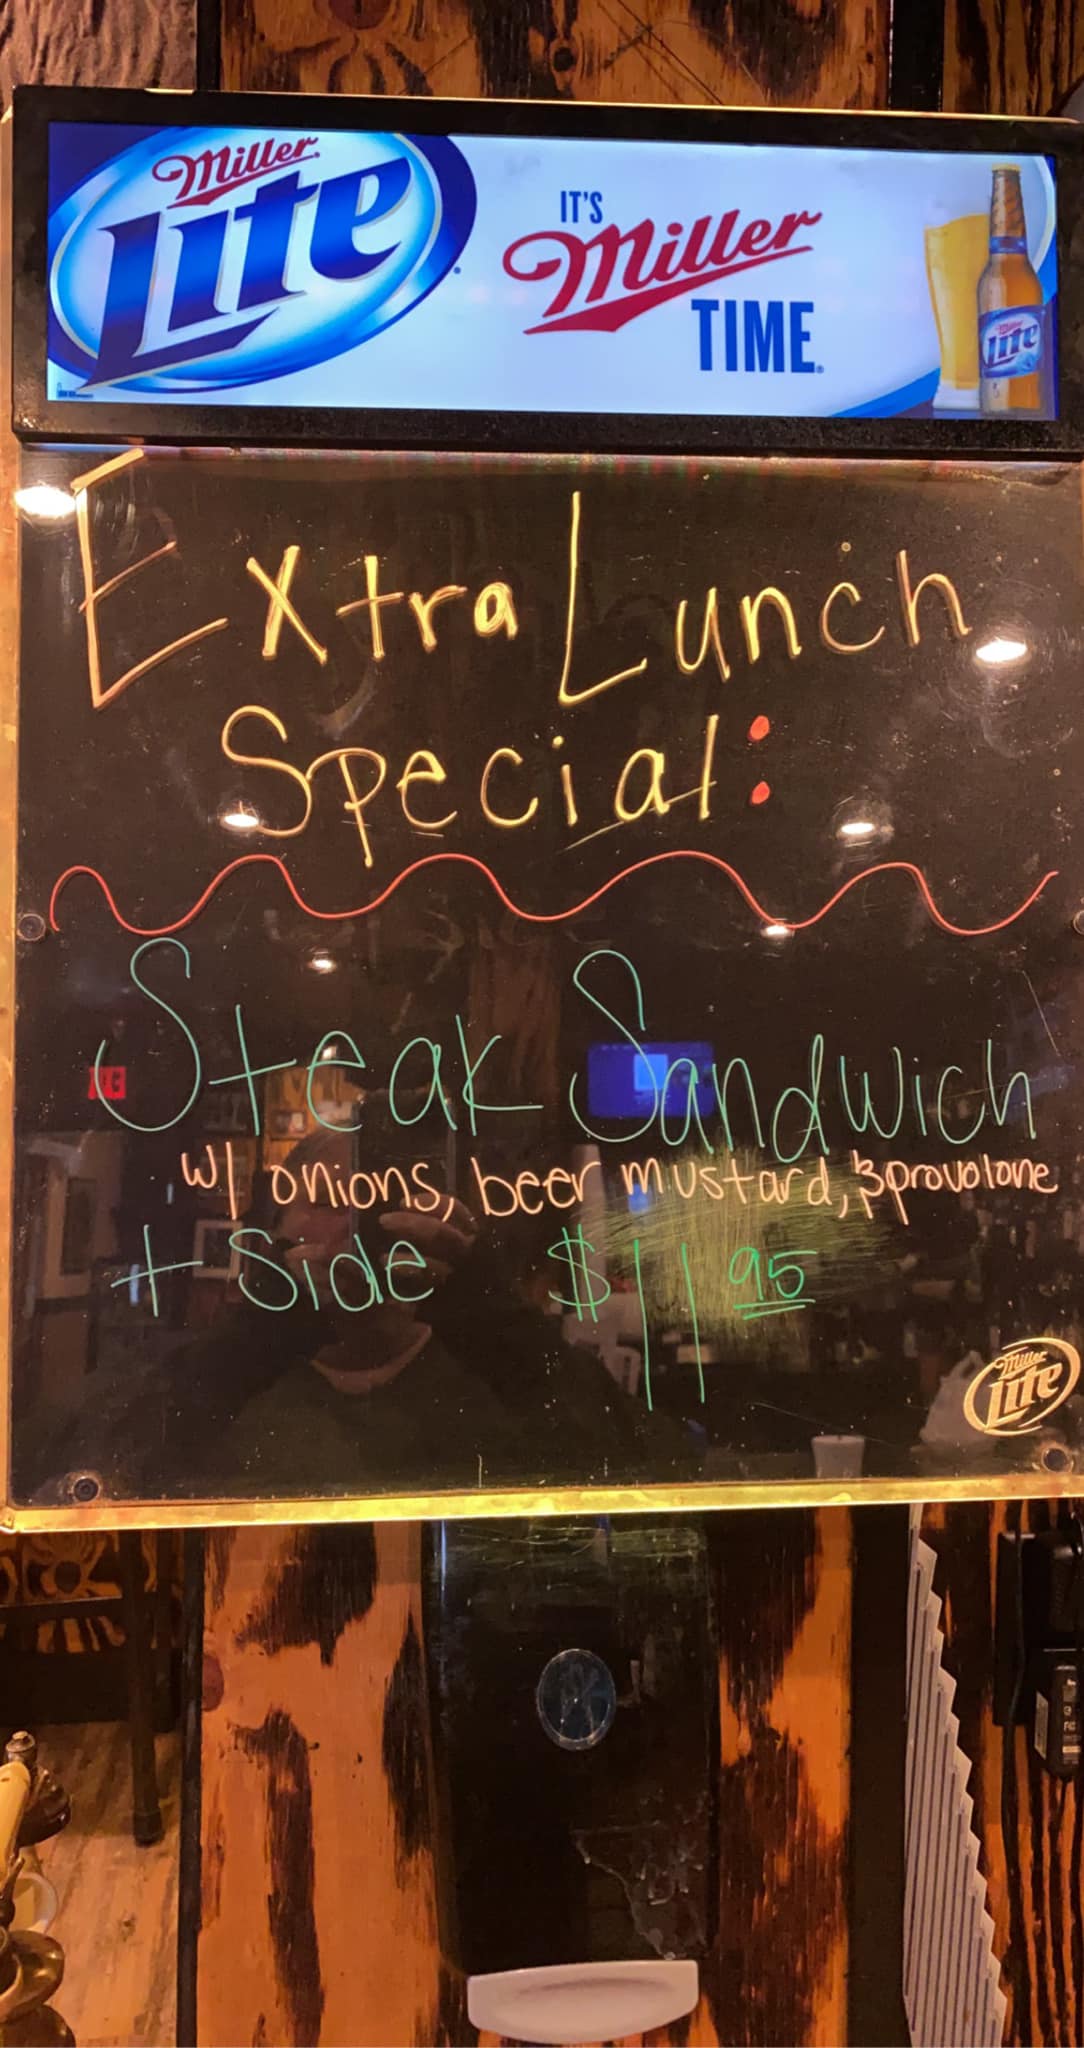 Miller
Lite
IT'S
Miller
TIME
Lite
Extra Lunch
Special:
Steak Sandwich
w/ onions, beer mustard, & provolone
+ Side $11 95
Miller
Lite